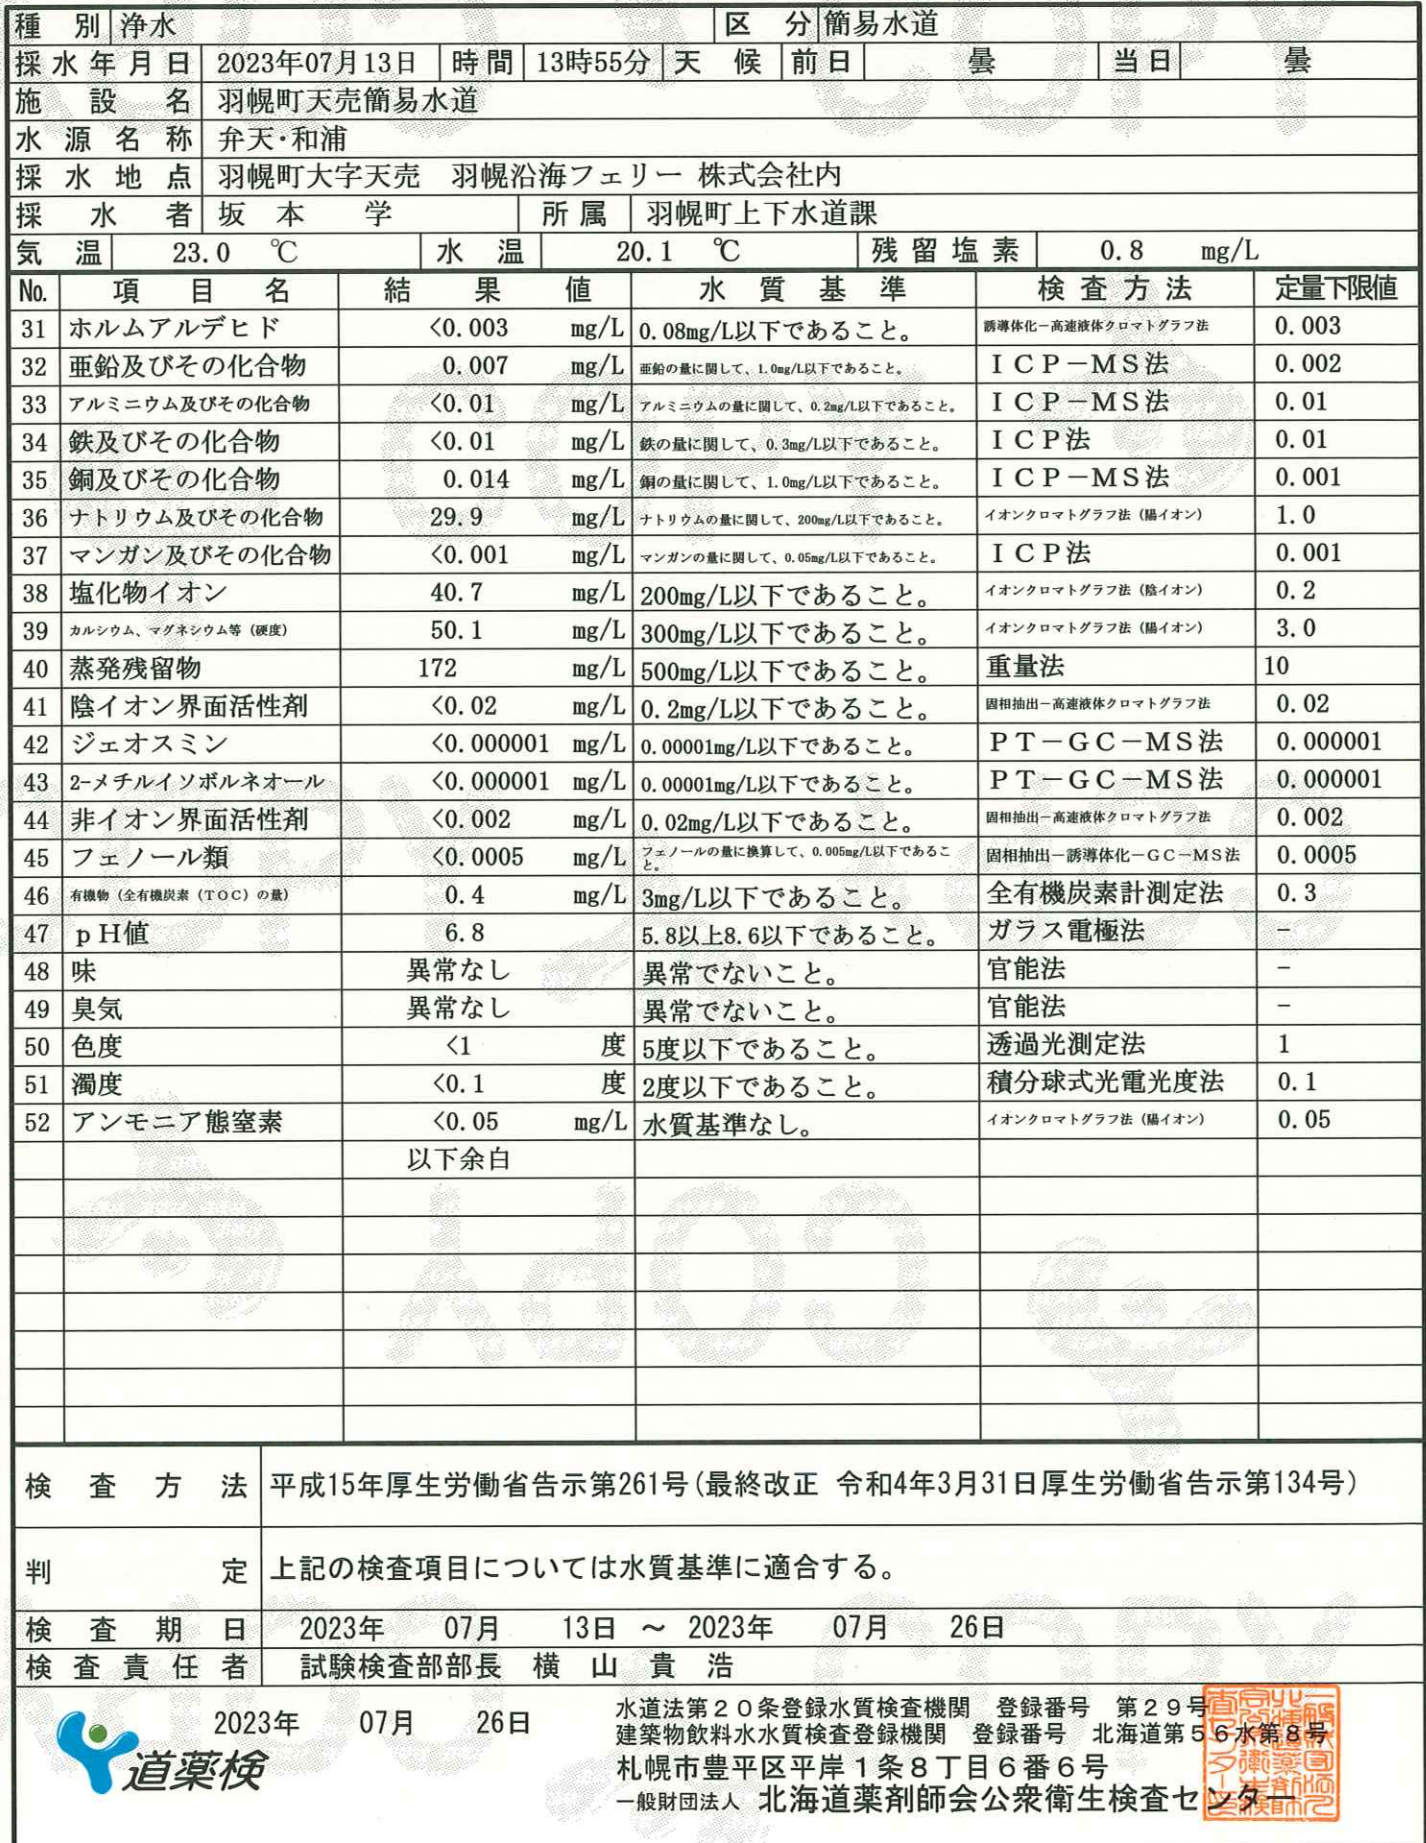 種別 浄水 区分 簡易水道
採水年月日 2023年07月13日 時間 13時55分 天候 前日 曇 当日 曇
施設名 羽幌町天売簡易水道
水源名称 弁天・和浦
採水地点 羽幌町大字天売 羽幌沿海フェリー 株式会社内
採水者 坂本 学 所属 羽幌町上下水道課
気温 23.0 ℃ 水温 20.1 ℃ 残留塩素 0.8 mg/L
No. 項目名 結果値 水質基準 検査方法 定量下限値
31 ホルムアルデヒド <0.003 mg/L 0.08mg/L以下であること。 誘導体化－高速液体クロマトグラフ法 0.003
32 亜鉛及びその化合物 0.007 mg/L 亜鉛の量に関して、1.0mg/L以下であること。 ICP－MS法 0.002
33 アルミニウム及びその化合物 <0.01 mg/L アルミニウムの量に関して、0.2mg/L以下であること。 ICP－MS法 0.01
34 鉄及びその化合物 <0.01 mg/L 鉄の量に関して、0.3mg/L以下であること。 ICP法 0.01
35 銅及びその化合物 0.014 mg/L 銅の量に関して、1.0mg/L以下であること。 ICP－MS法 0.001
36 ナトリウム及びその化合物 29.9 mg/L ナトリウムの量に関して、200mg/L以下であること。 イオンクロマトグラフ法（陽イオン） 1.0
37 マンガン及びその化合物 <0.001 mg/L マンガンの量に関して、0.05mg/L以下であること。 ICP法 0.001
38 塩化物イオン 40.7 mg/L 200mg/L以下であること。 イオンクロマトグラフ法（陰イオン） 0.2
39 カルシウム、マグネシウム等（硬度） 50.1 mg/L 300mg/L以下であること。 イオンクロマトグラフ法（陽イオン） 3.0
40 蒸発残留物 172 mg/L 500mg/L以下であること。 重量法 10
41 陰イオン界面活性剤 <0.02 mg/L 0.2mg/L以下であること。 固相抽出－高速液体クロマトグラフ法 0.02
42 ジェオスミン <0.000001 mg/L 0.00001mg/L以下であること。 PT－GC－MS法 0.000001
43 2-メチルイソボルネオール <0.000001 mg/L 0.00001mg/L以下であること。 PT－GC－MS法 0.000001
44 非イオン界面活性剤 <0.002 mg/L 0.02mg/L以下であること。 固相抽出－高速液体クロマトグラフ法 0.002
45 フェノール類 <0.0005 mg/L フェノールの量に換算して、0.005mg/L以下であること。 固相抽出－誘導体化－GC－MS法 0.0005
46 有機物（全有機炭素（TOC）の量） 0.4 mg/L 3mg/L以下であること。 全有機炭素計測定法 0.3
47 pH値 6.8 5.8以上8.6以下であること。 ガラス電極法 －
48 味 異常なし 異常でないこと。 官能法 －
49 臭気 異常なし 異常でないこと。 官能法 －
50 色度 <1 度 5度以下であること。 透過光測定法 1
51 濁度 <0.1 度 2度以下であること。 積分球式光電光度法 0.1
52 アンモニア態窒素 <0.05 mg/L 水質基準なし。 イオンクロマトグラフ法（陽イオン） 0.05
以下余白
検査方法 平成15年厚生労働省告示第261号（最終改正 令和4年3月31日厚生労働省告示第134号）
判定 上記の検査項目については水質基準に適合する。
検査期日 2023年 07月 13日 ～ 2023年 07月 26日
検査責任者 試験検査部部長 横山貴浩
2023年 07月 26日
道薬検
水道法第２０条登録水質検査機関 登録番号 第２９号
建築物飲料水水質検査登録機関 登録番号 北海道第５６水第８号
札幌市豊平区平岸１条８丁目６番６号
一般財団法人 北海道薬剤師会公衆衛生検査センター